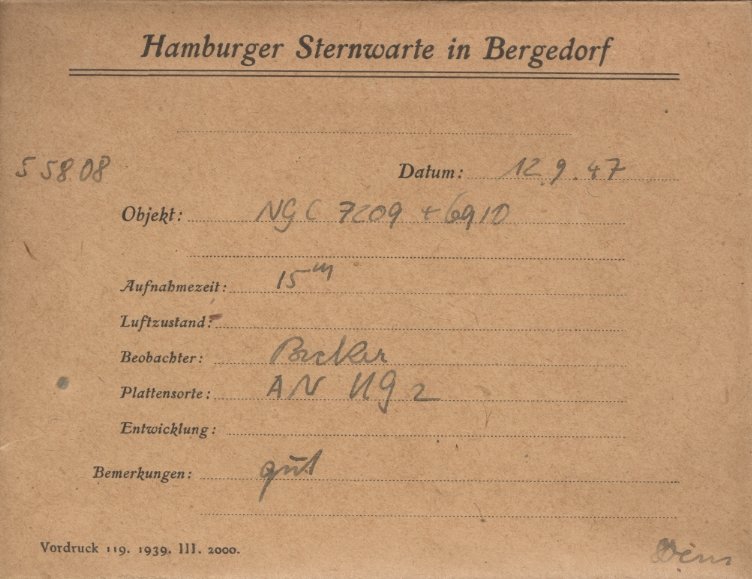 Hamburger Sternwarte in Bergedorf
55808
Datum: 12.9.47
Objekt: NGC 7209 + 6910
Aufnahmezeit: 15 m
Luftzustand:
Beobachter: Becker
Plattensorte: AN
Entwicklung:
Bemerkungen: gut
Vordruck 119. 1939. III. 2000.